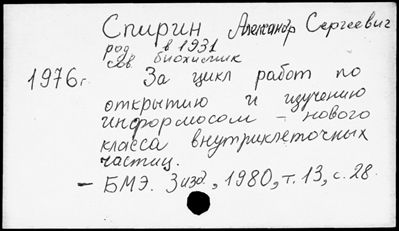 Спирин Александр Сергеевич
род в 1931
сов биохимик
1976г. За цикл работ по
открытию и изучению
информосом – нового
класса внутриклеточных
частиц.
– БМЭ. 3 изд., 1980, т. 13, с. 28.